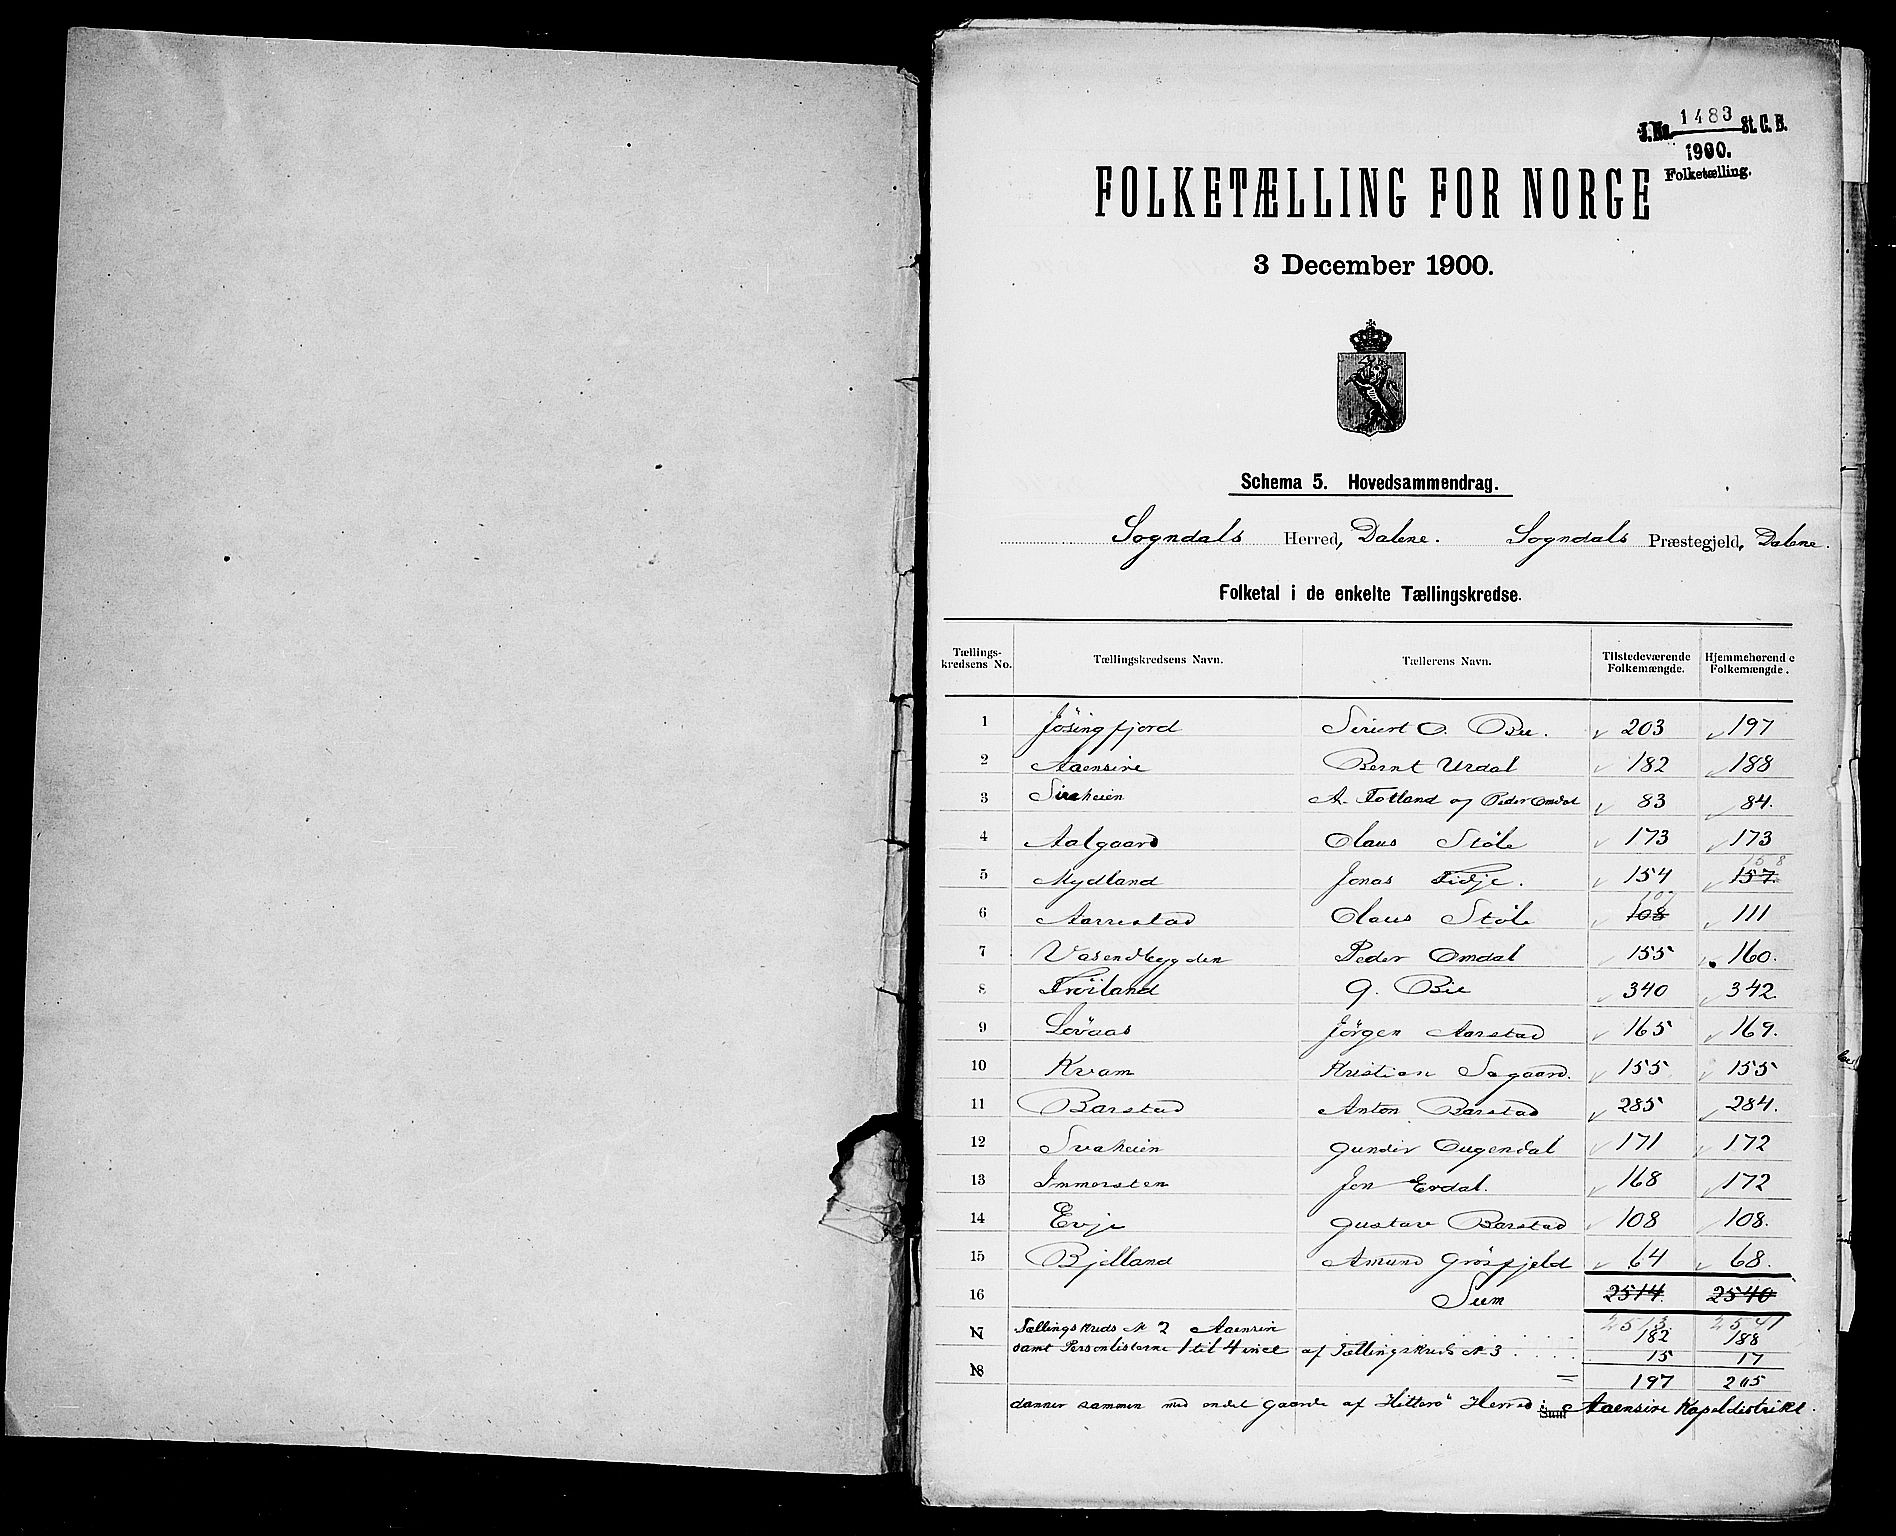 J.No. 1483 St. C. B.
1900.
Folketælling.
FOLKETÆLLING FOR NORGE
3 December 1900.
Schema 5. Hovedsammendrag.
Sogndals Herred, Dalene. Sogndals Præstegjeld, Dalene.
Folketal i de enkelte Tællingskredse.
Tællings-kredsens No. Tællingskredsens Navn. Tællerens Navn. Tilstedeværende Folkemængde. Hjemmehørende Folkemængde.
1 Jøsingfjord Sivert O. Bie. 203 197
2 Aaensire Bernt Urdal 182 188
3 Siraheien A. Totland og Peder Omdal 83 84.
4 Aalgaard Claus Støle 173 173
5 Mydland Jonas Tidje. 154 157. 158
6 Aarrestad Claus Støle 108 107 111
7 Vasendbygden Peder Omdal 155 160.
8 Frøiland G. Bie 340 342
9 Løvaas Jörgen Aarstad 165 169.
10 Kvam Kristian Sagaard. 155 155
11 Barstad Anton Barstad 285 284.
12 Svaheien Gunder Eugendal 171 172
13 Immersten Jon Erdal. 168 172
14 Evje Gustav Barstad 108 108.
15 Bjelland Amund Grøsfjeld 64 68.
16 Sum 2514 2540
2513 2541
17 Tællingskreds № 2 Aaensire 182 188
samt Personlisterne 1 til 4 incl af Tællingskreds № 3 . . . . 15 17
18 = 197 205
danner sammen med endel gaarde af Hitterö Herred i Sum Aaensire Kapeldistrikt.